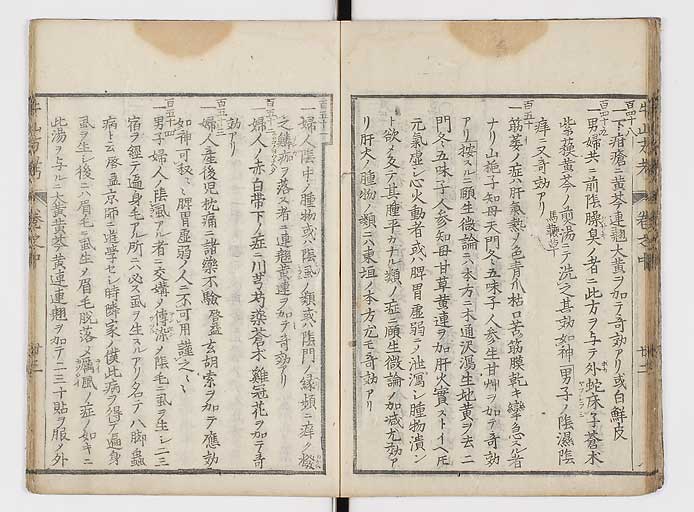 百四十八
一下疳瘡ニ黄芩連翹大黄ヲ加テ奇効アリ或白鮮皮
百四十九
一男婦共ニ前陰臊臭ノ者ニ此方ヲ与テ外蛇床子蒼朮
紫蘓黄芩ノ煎湯ニテ洗之甚効如神一男子ノ陰濕陰
痒ニ又奇効アリ
馬鞭草
一筋萎ノ症ハ肝氣熱ノ色青爪枯口苦筋膜乾キ攣急スル者
ナリ山梔子知母天門冬五味子人参生甘艸ヲ加テ奇効
アリ按スルニ頤生微論ニハ本方ニ木通沢瀉生地黄ヲ去ニ
門冬五味子人参知母甘草黄連ヲ加肝火實ストイヘ𪜈
元氣虚シ心火動者或ハ脾胃虚弱ニメ泄瀉シ腫物潰ン
ト欲メ久テ其腫平カナル類ノ症ニ頤生微論ノ加减尤効ア
リ肝火ノ腫物ノ類ニハ東垣ノ本方尤モ奇効アリ
牛山方考
巻之中
廿二
百五十一
一婦人陰中ノ腫物或ハ陰虱ノ類或ハ陰門ノ縁頻ニ痒ク撥
之鱗痂ヲ落ス者ニ連翹黄連ヲ加テ奇効アリ
一婦人ノ赤白帯下ノ症ニ川芎芍薬蒼朮雞冠花ヲ加テ奇
効アリ
百五十三
一婦人産後児枕痛ニ諸薬不驗啓益玄胡索ヲ加テ應効
如神可秘々々脾胃虚弱ノ人ニ不可用謹之々々
百五十四
一男子婦人ノ陰虱アル者ニ交媾メ傳染メ陰毛ニ虱ヲ生シ二三
宿ヲ經テ遍身毛アル所ニハ必ス虱ヲ生スルアリ名テ八脚蟲
病ト云啓益京師ニ遊學セシ時隣家ノ僕此病ヲ得テ遍身
虱ヲ生シ後ニハ眉毛ニ虱生メ眉毛脱落メ癘風ノ症ノ如キニ
此湯ヲ与ルニ大黄黄芩黄連連翹ヲ加テ二三十貼ヲ服メ外